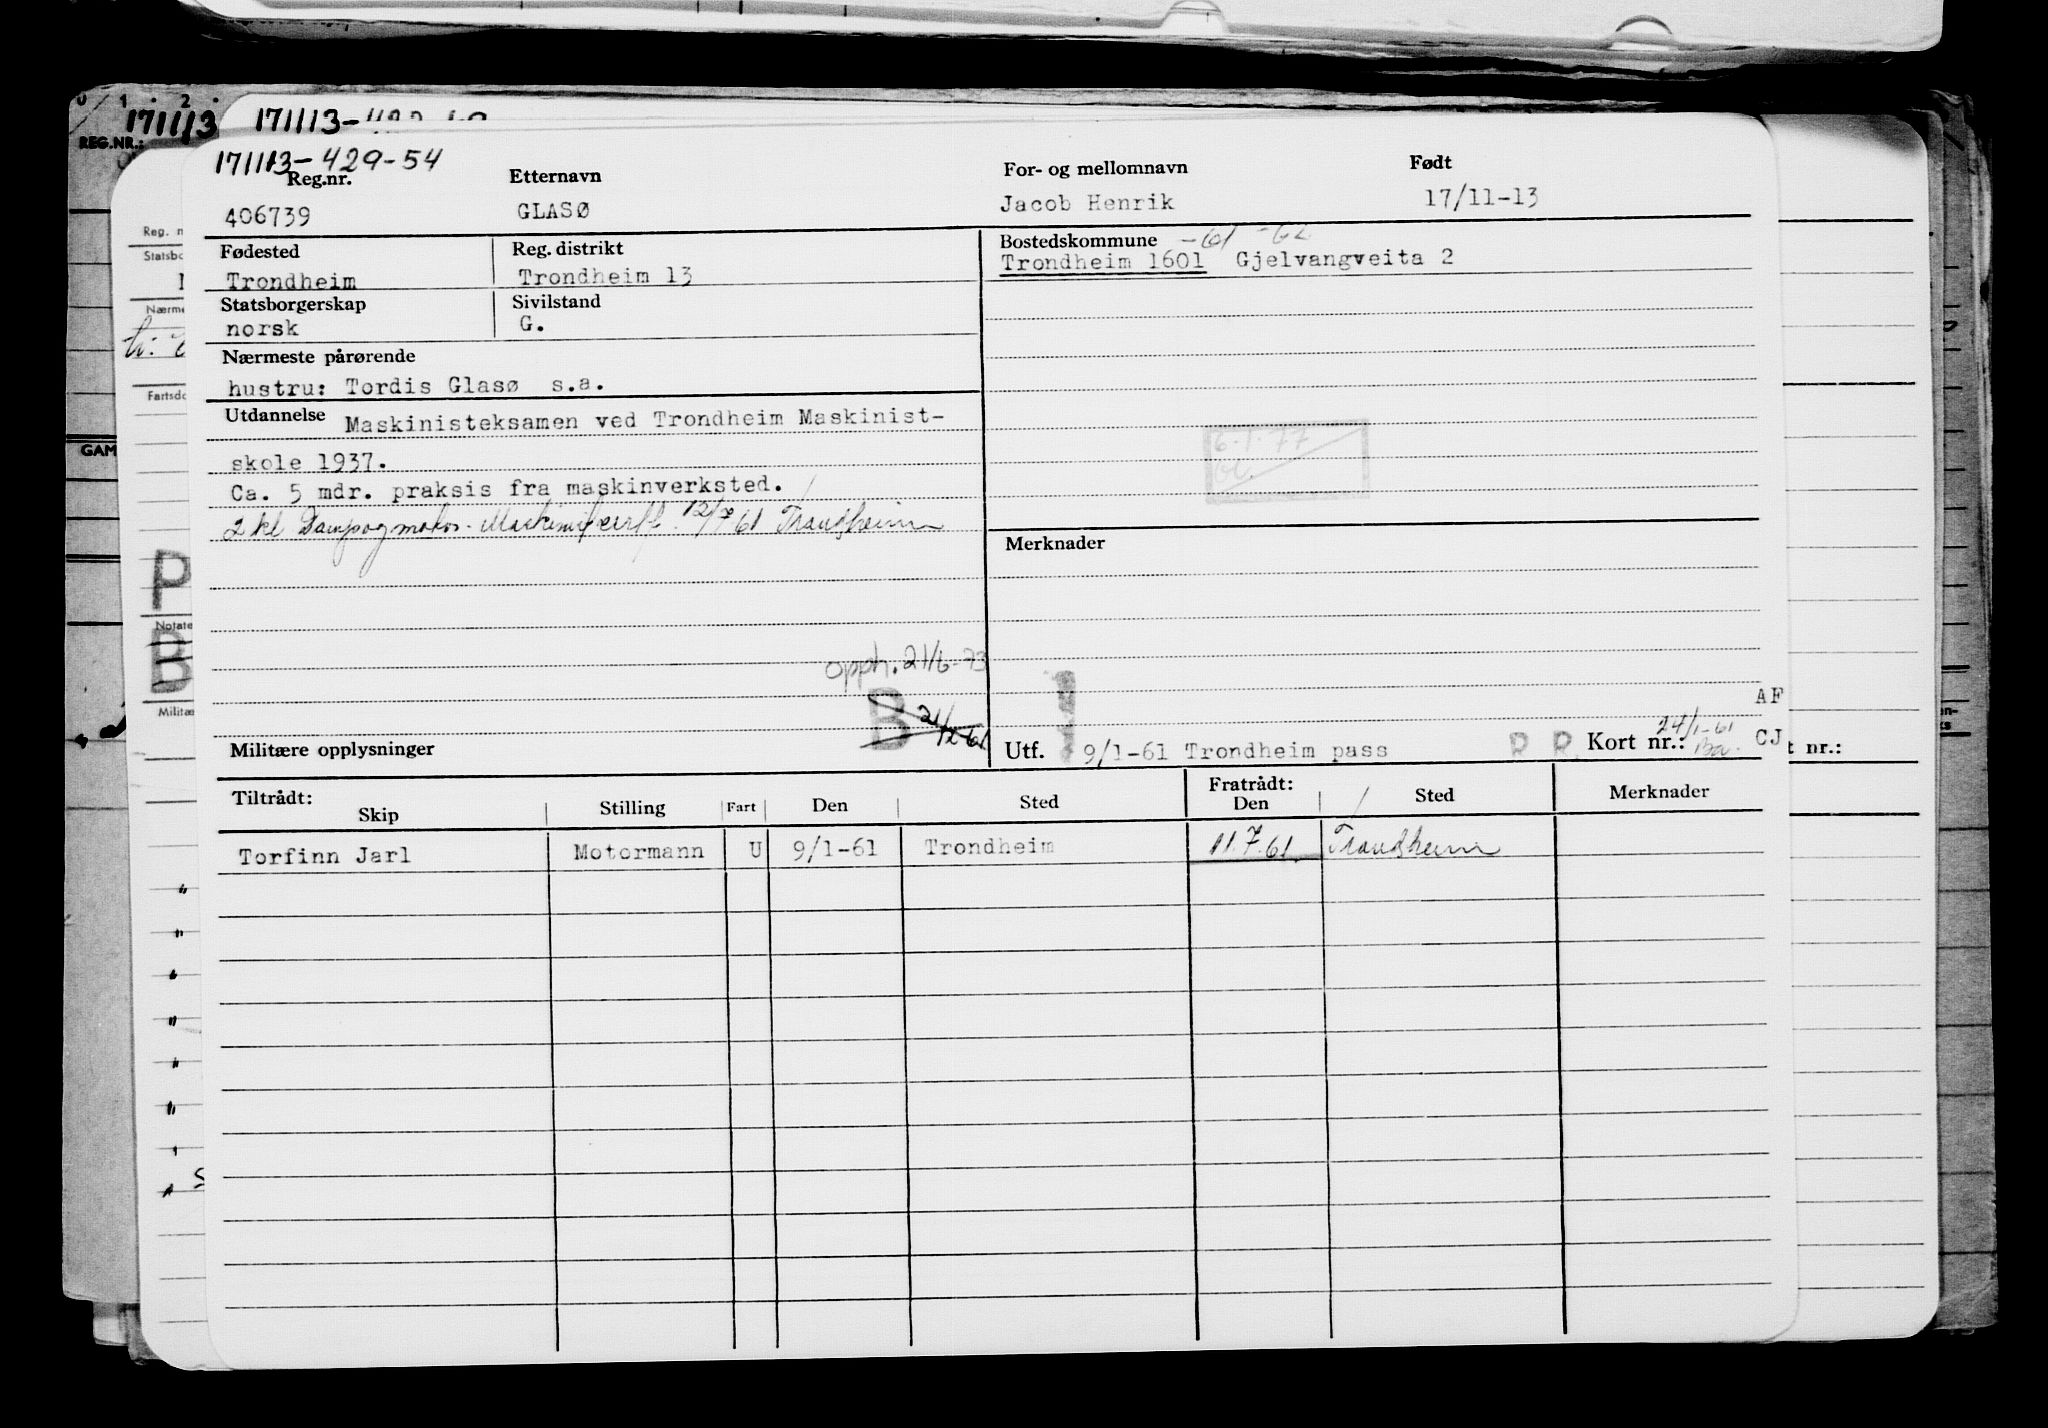 0 1 . 2 .
REG.NR.:
171113
171113-
171113-429-54
Reg.nr. Etternavn For- og mellomnavn Født
406739 GLASØ Jacob Henrik 17/11-13
Fødested Reg. distrikt Bostedskommune -61 -62
Trondheim Trondheim 13 Trondheim 1601 Gjelvangveita 2
Statsborgerskap Sivilstand
norsk G.
Nærmeste pårørende
hustru: Tordis Glasø s.a.
Utdannelse Maskinisteksamen ved Trondheim Maskinist-
skole 1937.
Ca. 5 mdr. praksis fra maskinverksted.
2 kl Damp og motor- Maskinistcertf. 12/7 61 Trondheim
6.1.77
Merknader
opph. 21/6-73
B 21/12 61
AF
Militære opplysninger Utf. 9/1-61 Trondheim pass R R Kort nr.: 24/1-61 CJ
Tiltrådt: Fratrådt:
Skip Stilling Fart Den Sted Den Sted Merknader
Torfinn Jarl Motormann U 9/1-61 Trondheim 11.7.61 Trondheim
Reg. n
Statsbo
Nærme
Fartsdo
GAM
P
Notate
B
Militæ
t nr.: